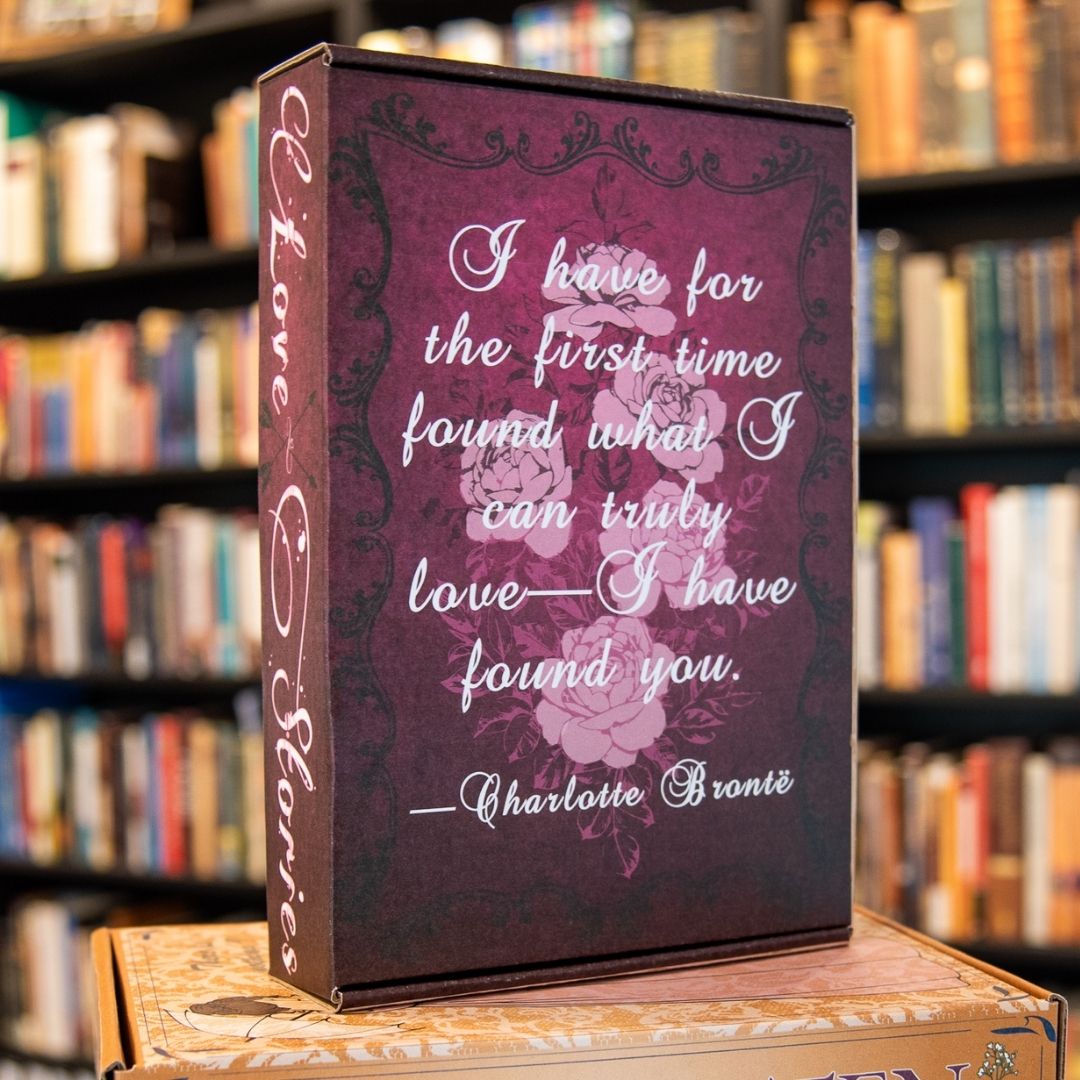 Love Stories
I have for
the first time
found what I
can truly
love—I have
found you.
—Charlotte Brontë